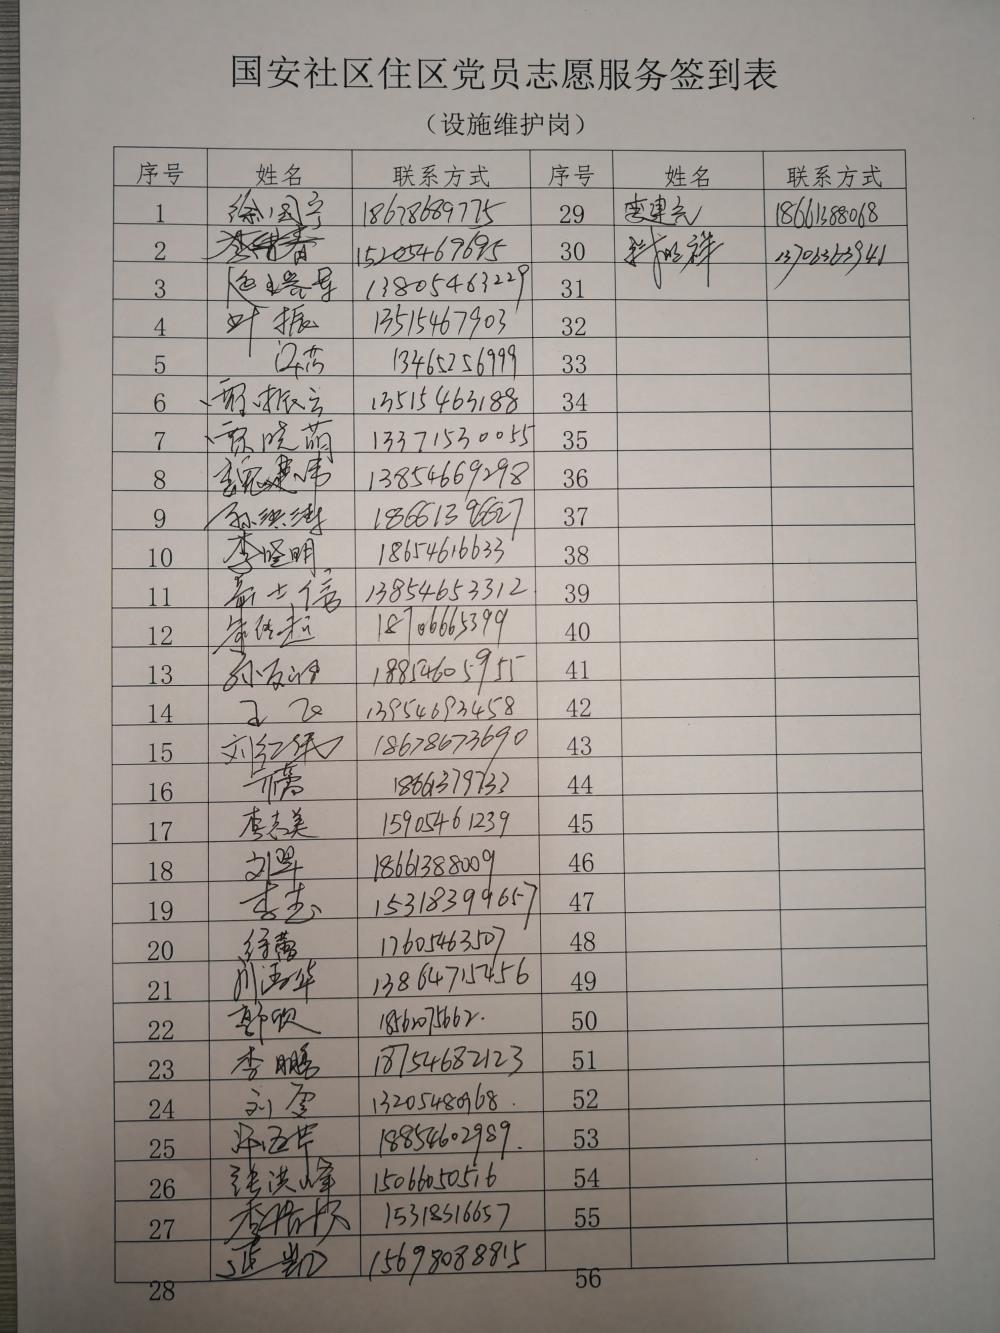 国安社区住区党员志愿服务签到表
（设施维护岗）
序号 姓名 联系方式 序号 姓名 联系方式
1 徐国宁 18678689775 29 李建民 18661388068
2 15205469695 30 祥 13706363941
3 13805463229 31
4 叶振 13515467903 32
5 13465256999 33
6 振云 13515463188 34
7 贾晓萌 13371530055 35
8 魏建伟 13854669298 36
9 孙洪涛 18661396627 37
10 李晓明 18654616633 38
11 13854653312 39
12 18706665399 40
13 孙友 18854605955 41
14 王飞 13954693458 42
15 刘红 18678673690 43
16 18661379733 44
17 李志美 15905461239 45
18 刘翠 18661388009 46
19 李杰 15318399657 47
20 徐蕾 17605463507 48
21 刘清华 13864715456 49
22 郭欣 18562075662 50
23 李鹏 18754682123 51
24 刘雯 13205480968 52
25 18854602989 53
26 张洪峰 15066050516 54
27 李 15318516657 55
28 孟凯 15698088815 56